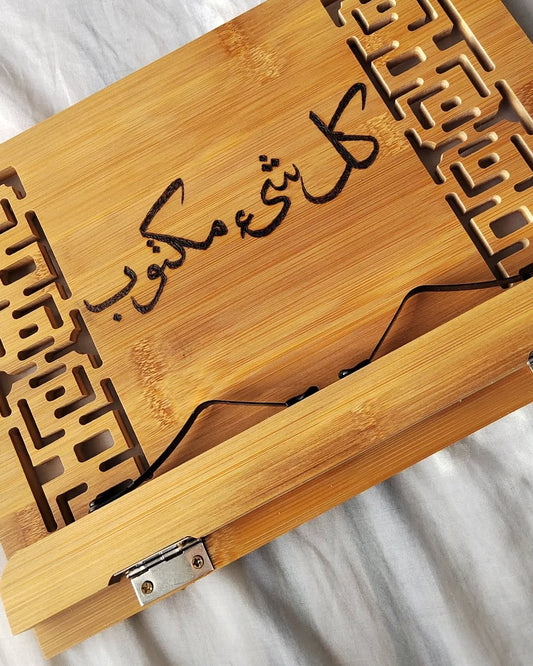 كل شيء مكتوب